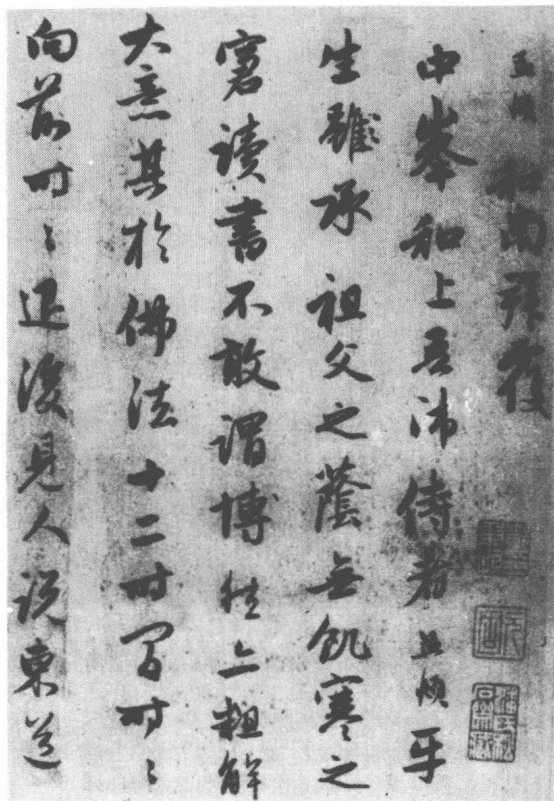 孟頫和南拜覆
中峯和上吾師侍者孟頫平
生雖承祖父之蔭無飢寒之
窘讀書不敢謂博然亦粗解
大意其於佛法十二時間時〻
向前時〻退後見人說東道